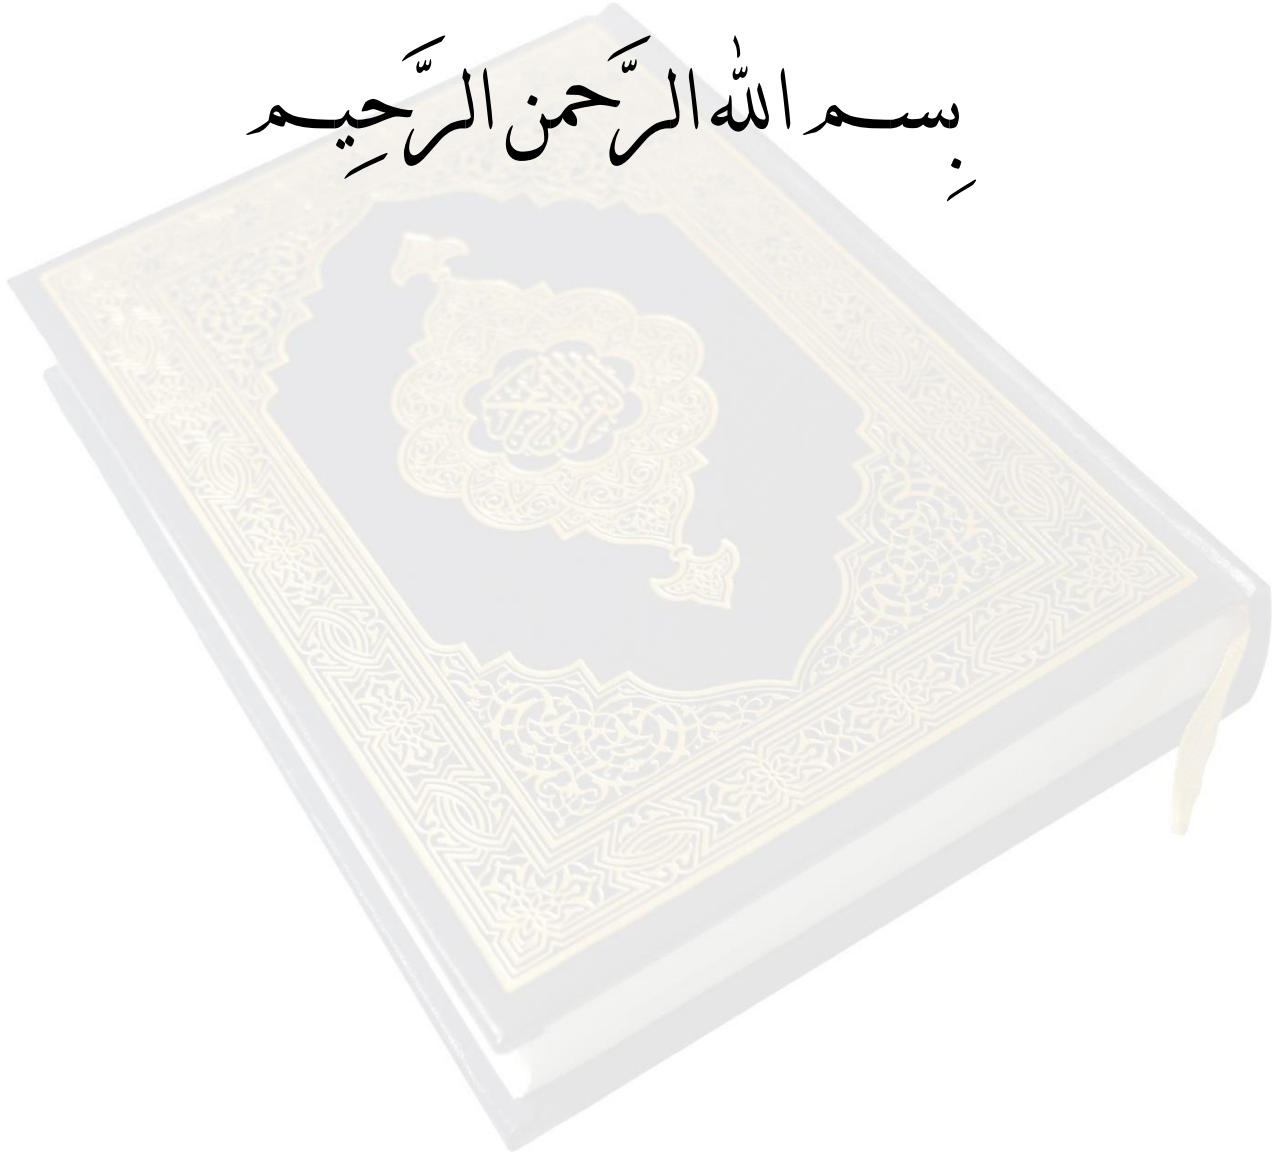 بِسـم الله الرَّحمن الرَّحِيـم